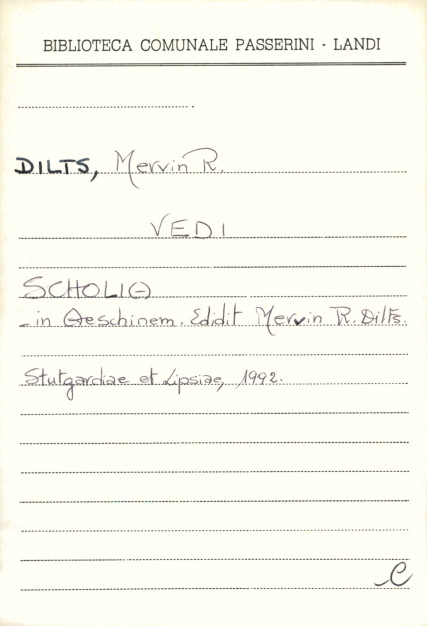 BIBLIOTECA COMUNALE PASSERINI - LANDI
DILTS, Mervin R.
VEDI
SCHOLIA
- in Aeschinem. Edidit Mervin R. Dilts.
Stutgardiae et Lipsiae, 1992.
C